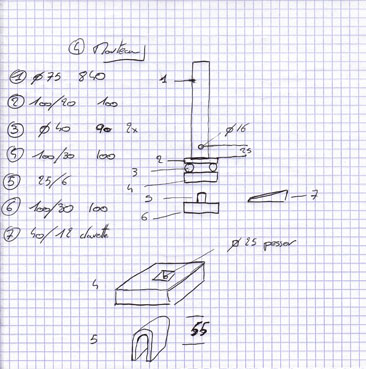 ④ Marteau
① ø 75 840
② 100/20 100
③ ø 40 90 2x
④ 100/30 100
⑤ 25/6
⑥ 100/30 100
⑦ 40/12 clavette
1
ø 16
25
2
3
4
5
6
7
ø 25 passer
4
5
55